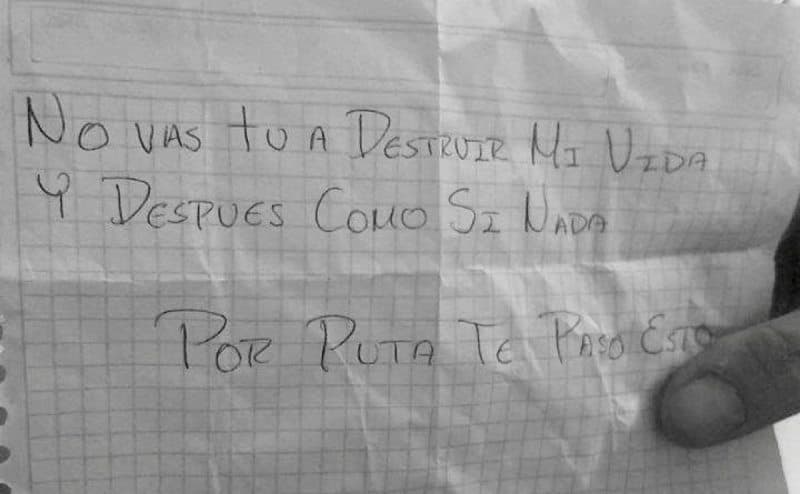 No VAS tu A DESTRUIR MI VIDA
Y DESPUES COMO SI NADA
POR PUTA TE PASO ESTO